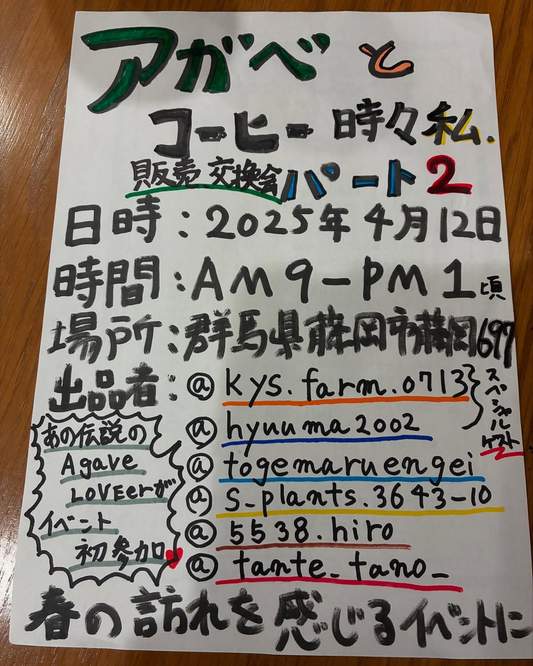 アガベと
コーヒー 時々私.
販売交換会 パート2
日時:2025年4月12日
時間:AM9-PM1頃
場所:群馬県藤岡市藤岡697
出品者:@kys.farm.0713
@hyuuma2002
スペシャルゲスト
@togemaruengei
@s_plants.3643-10
@5538.hiro
@tante_tano_
あの伝説の
Agave
LOVEerが
イベント
初参加
春の訪れを感じるイベントに